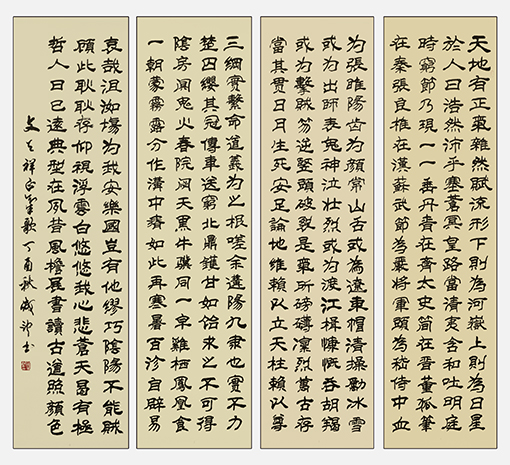 天地有正氣雜然賦流形下則為河嶽上則為日星
於人曰浩然沛乎塞蒼冥皇路當清夷含和吐明庭
時窮節乃現一一垂丹青在齊太史簡在晉董狐筆
在秦張良椎在漢蘇武節為嚴將軍頭為嵇侍中血
为張睢陽齒为顏常山舌或為遼東帽清操勵冰雪
或为出師表鬼神泣壯烈或为渡江楫慷慨吞胡羯
或为擊賊笏逆豎頭破裂是氣所磅礴凜烈萬古存
當其貫日月生死安足論地維賴以立天柱賴以尊
三綱實繫命道義为之根嗟余遘陽九隸也實不力
楚囚纓其冠傳車送窮北鼎鑊甘如飴求之不可得
陰房闃鬼火春院閟天黑牛驥同一皁雞棲鳳凰食
一朝蒙霧露分作溝中瘠如此再寒暑百沴自辟易
哀哉沮洳場为我安樂國豈有他繆巧陰陽不能賊
顧此耿耿存仰視浮雲白悠悠我心悲蒼天曷有極
哲人日已遠典型在夙昔風檐展書讀古道照顏色
文天祥正氣歌丁酉秋書